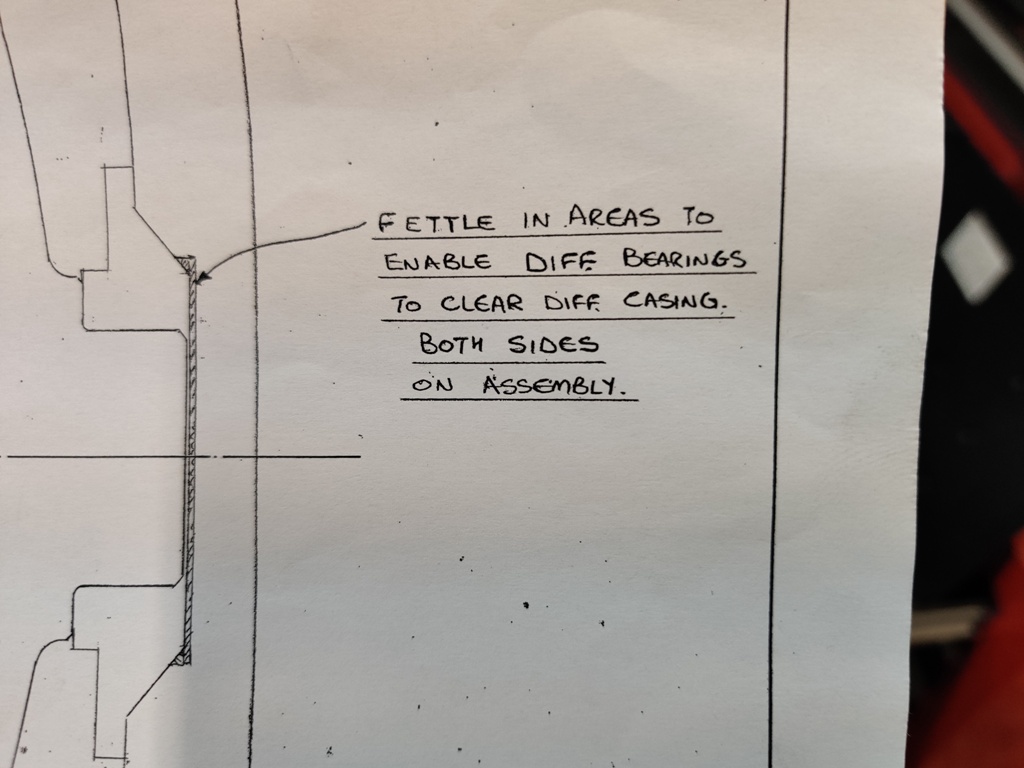 FETTLE IN AREAS TO
ENABLE DIFF. BEARINGS
TO CLEAR DIFF. CASING.
BOTH SIDES
ON ASSEMBLY.